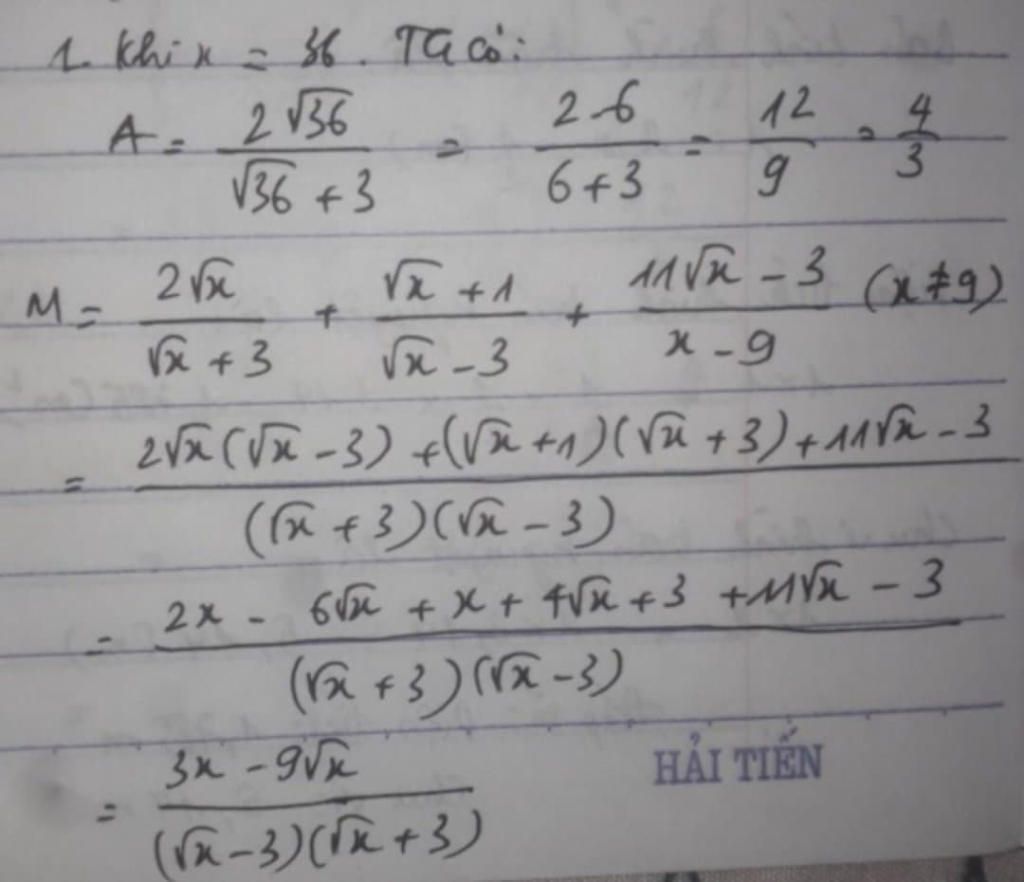 1. Khi x = 36. Ta có:
A = 2√36 / (√36 + 3) = 2.6 / (6 + 3) = 12 / 9 = 4 / 3
M = 2√x / (√x + 3) + (√x + 1) / (√x - 3) + (11√x - 3) / (x - 9) (x ≠ 9)
= (2√x(√x - 3) + (√x + 1)(√x + 3) + 11√x - 3) / ((√x + 3)(√x - 3))
= (2x - 6√x + x + 4√x + 3 + 11√x - 3) / ((√x + 3)(√x - 3))
= (3x - 9√x) / ((√x - 3)(√x + 3))
HẢI TIẾN